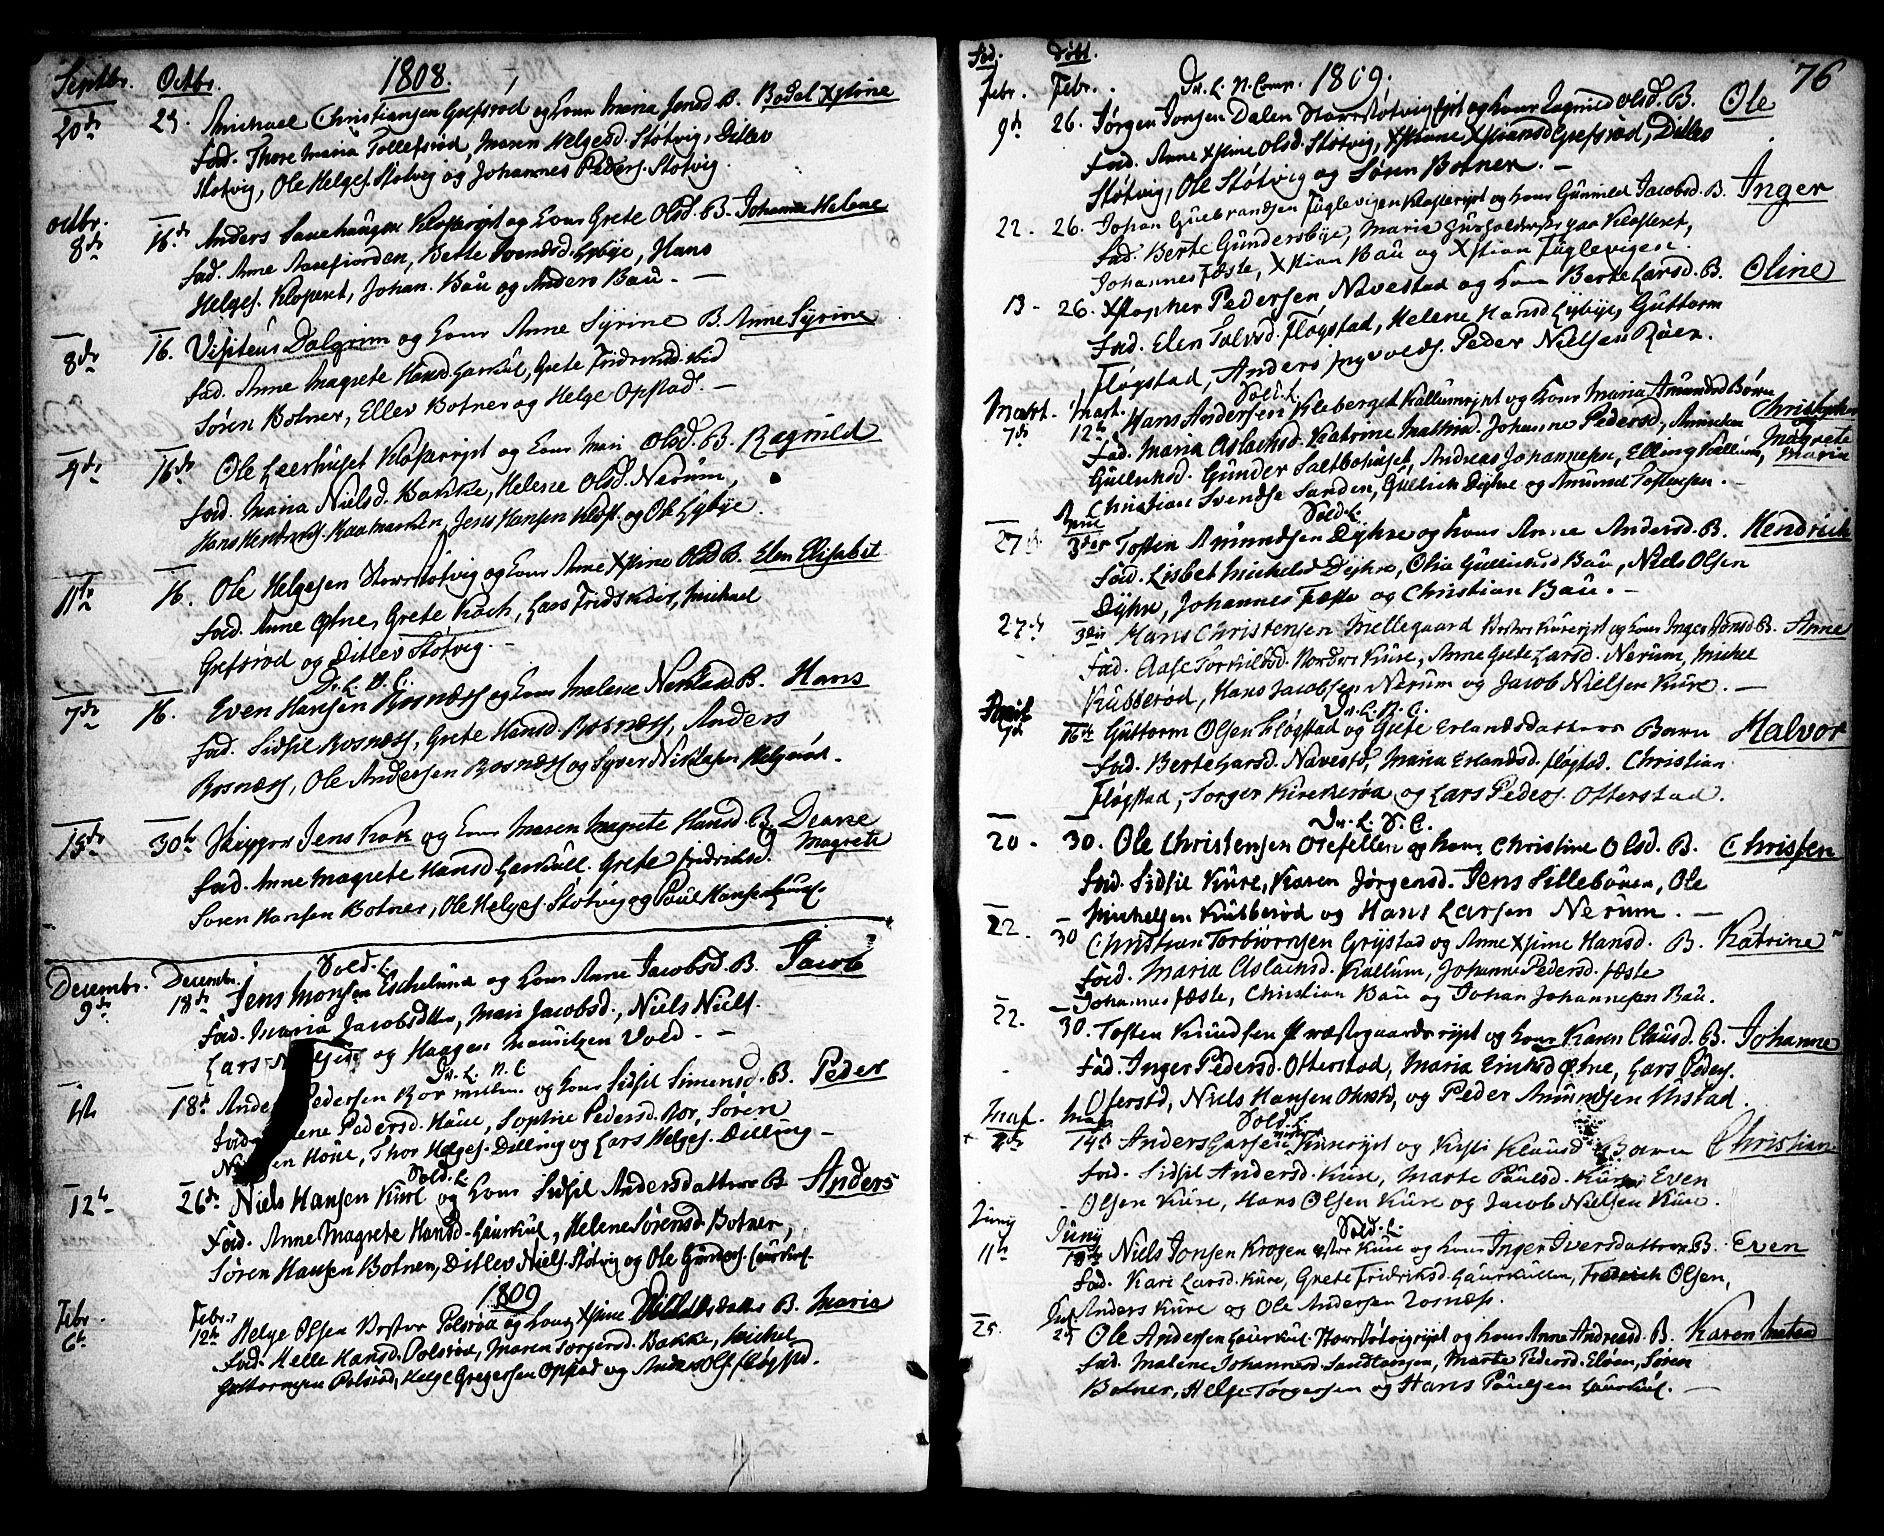 Septbr. Octbr. 1808.
20de 23. Michael Christiansen Grefsrød og hans Maria Jensd. B. Bodel Xstine
Fad. Thore Maria Tollefsrød, Maren Helgesd. Støtvig, Ditlev
Støtvig, Ole Helges. Støtvig og Johannes Peders. Støtvig.
octbr.
8de 16de Anders Sauehaugen Klosterejet og hans Grete Olsd. B. Johanne Helene
Fad. Anne Aasefiorden, Berte Svensd. Lybye, Hans
Helges. Klosteret, Johan Bau og Anders Bau. —
8de 16. Visiteur Dalgrim og hans Anne Syrine B. Anne Syrine
Fad. Anne Magrete Hansd. Laurkul, Grete Fridriksd. ibid
Søren Botner, Ellev Botner og Helge Opstad. —
9de 16de Ole Leerhuset Klosterejet og hans Mari Olsd. B. Ragnild
Fad. Maria Nielsd. Bakke, Helene Olsd. Nerum,
Hans Hendrichs. Kaamarken, Jens Hansen Klost. og Ole Lybye.
11te 16. Ole Helgesen Stoerstøtvig og hans Anne Xstine Olsd. B. Elen Elisabet
Fad. Anne Østne, Grete Koch, Lars Frids, Michael
Grefsrød og Ditlev Støtvig. —
7de 16. Even Hansen Rosnæss og hans Malene Nerstad B. Hans
Fad. Sidsil Rosnæss, Grete Hansd. Rosnæss, Anders
Rosnæss, Ole Andersen Rosnæss og Syver Helgerød.
15de 30te Skipper Jens Kok og hans Maren Magrete Hansd. B. Deane
Magrete
Fad. Anne Magrete Hansd. Laurkull. Grete Fridriksd.
Søren Hansen Botner, Ole Helges. Støtvig og Paul Hansen Laurk.
Sold. L.
Decembr. Decembr.
9de 18de Jens Monsen Eschelund og hans Anne Jacobsd. B. Jacob
Fad. Maria Jacobsdtter, Mari Jacobsd., Niels Niels.
Lars og Haagen Mauritzen Vold. —
1ste 18de Anders Pedersen Roer og hans Sidsil Simensd. B. Peder
Fad. Pedersd. Høue, Sophie Pedersd. Roer, Søren
Høue, Thor Helges. Dilling og Lars Helges. Dilling —
Sold. L.
12te 26de Niels Hansen Kure og hans Sidsil Andersdatter B. Anders
Fad. Anne Magrete Hansd. Laurkul, Helene Sørensd. Botner,
Søren Hansen Botner, Ditlev Niels. Støtvig og Ole Gunders. Laurkul.
1809
Febr. Febr.
6te 12te Helge Olsen Vester Rolsrød og hans Xstine B. Maria
Fad. Helle Hansd. Rolsrød, Maren Torgersd. Bakke, Michel
Guttormsen Rolsrød, Helge Gregersen Opstad og Anders Ols. Fløgstad.
76
Fød. Døbt.
Febr. Febr. 1809.
9de 26. Jørgen Jonsen Dalen Stoerstøtvigejet og hans Ragnild Olsd. B. Ole
Fad. Anne Xstine Olsd. Støtvig, Xstiane Xstiansd. Grefsrød, Ditlev
Støtvig, Ole Støtvig og Søren Botner. —
22. 26. Johan Gulbrandsen Fuglevigen Klosterejet og hans Gunnild Jacobsd. B. Inger
Fad. Berte Gundersbye, Maria Husholderske paa Klosteret,
Johannes Fæste, Xstian Bau og Xstian Fuglevigen.
13. 26. Xstopher Pedersen Navestad og hans Berte Larsd. B. Oline
Fad. Elen Fløgstad, Helene Hansd. Lybye, Guttorm
Fløgstad, Anders Ingvolds. Peder Nielsen Røer.
Sold. L.
Mart. Mart.
7de 12te Hans Andersen Kleberget Kallumejet og hans Maria Amundsd Børn Christopher
Magrete
Maria
Fad. Maria Aslachsd. Katrine Johanne Pedersd., Anniken
Gulliksd. Gunder Saltbohuset, Andreas Johannesen, Elling Kallum,
Christian Svendse Sanden, Gullich Dyhre og Amund Tostensen. —
Sold. L.
27de 3die Tosten Amundsen Dyhre og hans Anne Andersd. B. Hendrick
Fad. Lisbet Michelsd Dyhre, Olia Gullichsd Bau, Niels Olsen
Dyhre, Johannes Fæste og Christian Bau. —
27de 3die Hans Christensen Mellegaard Vestre Kureejet og hans Inger Jonsd. B. Anne
Fad. Aase Torkildsd. Nordre Kure, Anne Grete Larsd. Nerum, Michel
Kubberød, Hans Jacobsen Nerum og Jacob Nielsen Kure. —
April
16de Guttorm Olsen Fløgstad og Grete Erlandsdatters Barn Halvor
Fad. Berte Larsd. Navestd, Maria Erlandsd. Fløgstad. Christian
Fløgstad, Torger Kirckerød og Lars Peders. Otterstad.
20. 30. Ole Christensen Orefellen og hans Christine Olsd. B. Christen
Fad. Sidsil Kure, Karen Jørgensd. Jens Sillebauen, Ole
Michelsen Kubberød og Hans Larsen Nerum. —
22. 30 Christian Torbiørnsen Grystad og Anne Xstine Hansd. B. Katrine
Fad. Maria Aslachsd. Kallum, Johanne Pedersd. Fæste
Johannes Fæste, Christian Bau og Johan Johannesen Bau.
22. 30. Tosten Knudsen Præstegaardsejet og hans Karen Clausd. B. Johanne
Fad. Inger Pedersd. Otterstad, Maria Ericksd Østne, Lars Peders.
Oterstd, Niels Hansen, og Peder Amundsen Unstad.
Sold. L.
Maj. Maj.
2de 14de Anders Larsen Kureejet og Kisti Klausd. Barn Christian
Fad. Sidsil Andersd. Kure, Marte Paulsd. Kure, Even
Olsen Kure, Hans Olsen Kure og Jacob Nielsen Kure.
Juny Juny Sold. L.
11te 18de Niels Jonsen Krogen Kure og hans Inger Iversdatter B. Even
Fad. Kari Larsd. Kure, Grete Fridriksd. Laurkullen, Frederich Olsen,
Anders Kure og Ole Andersen Rosnæs.
25. 25 Ole Andersen Laurkul. Stoerstøtvigejet og hans Anne Andreasd. B. Karen
Fad. Malene Johannesd. Sandtangen, Marte Pedersd. Eløen, Søren
Botner, Helge Torgersen og Hans Paulsen Laurkul. —